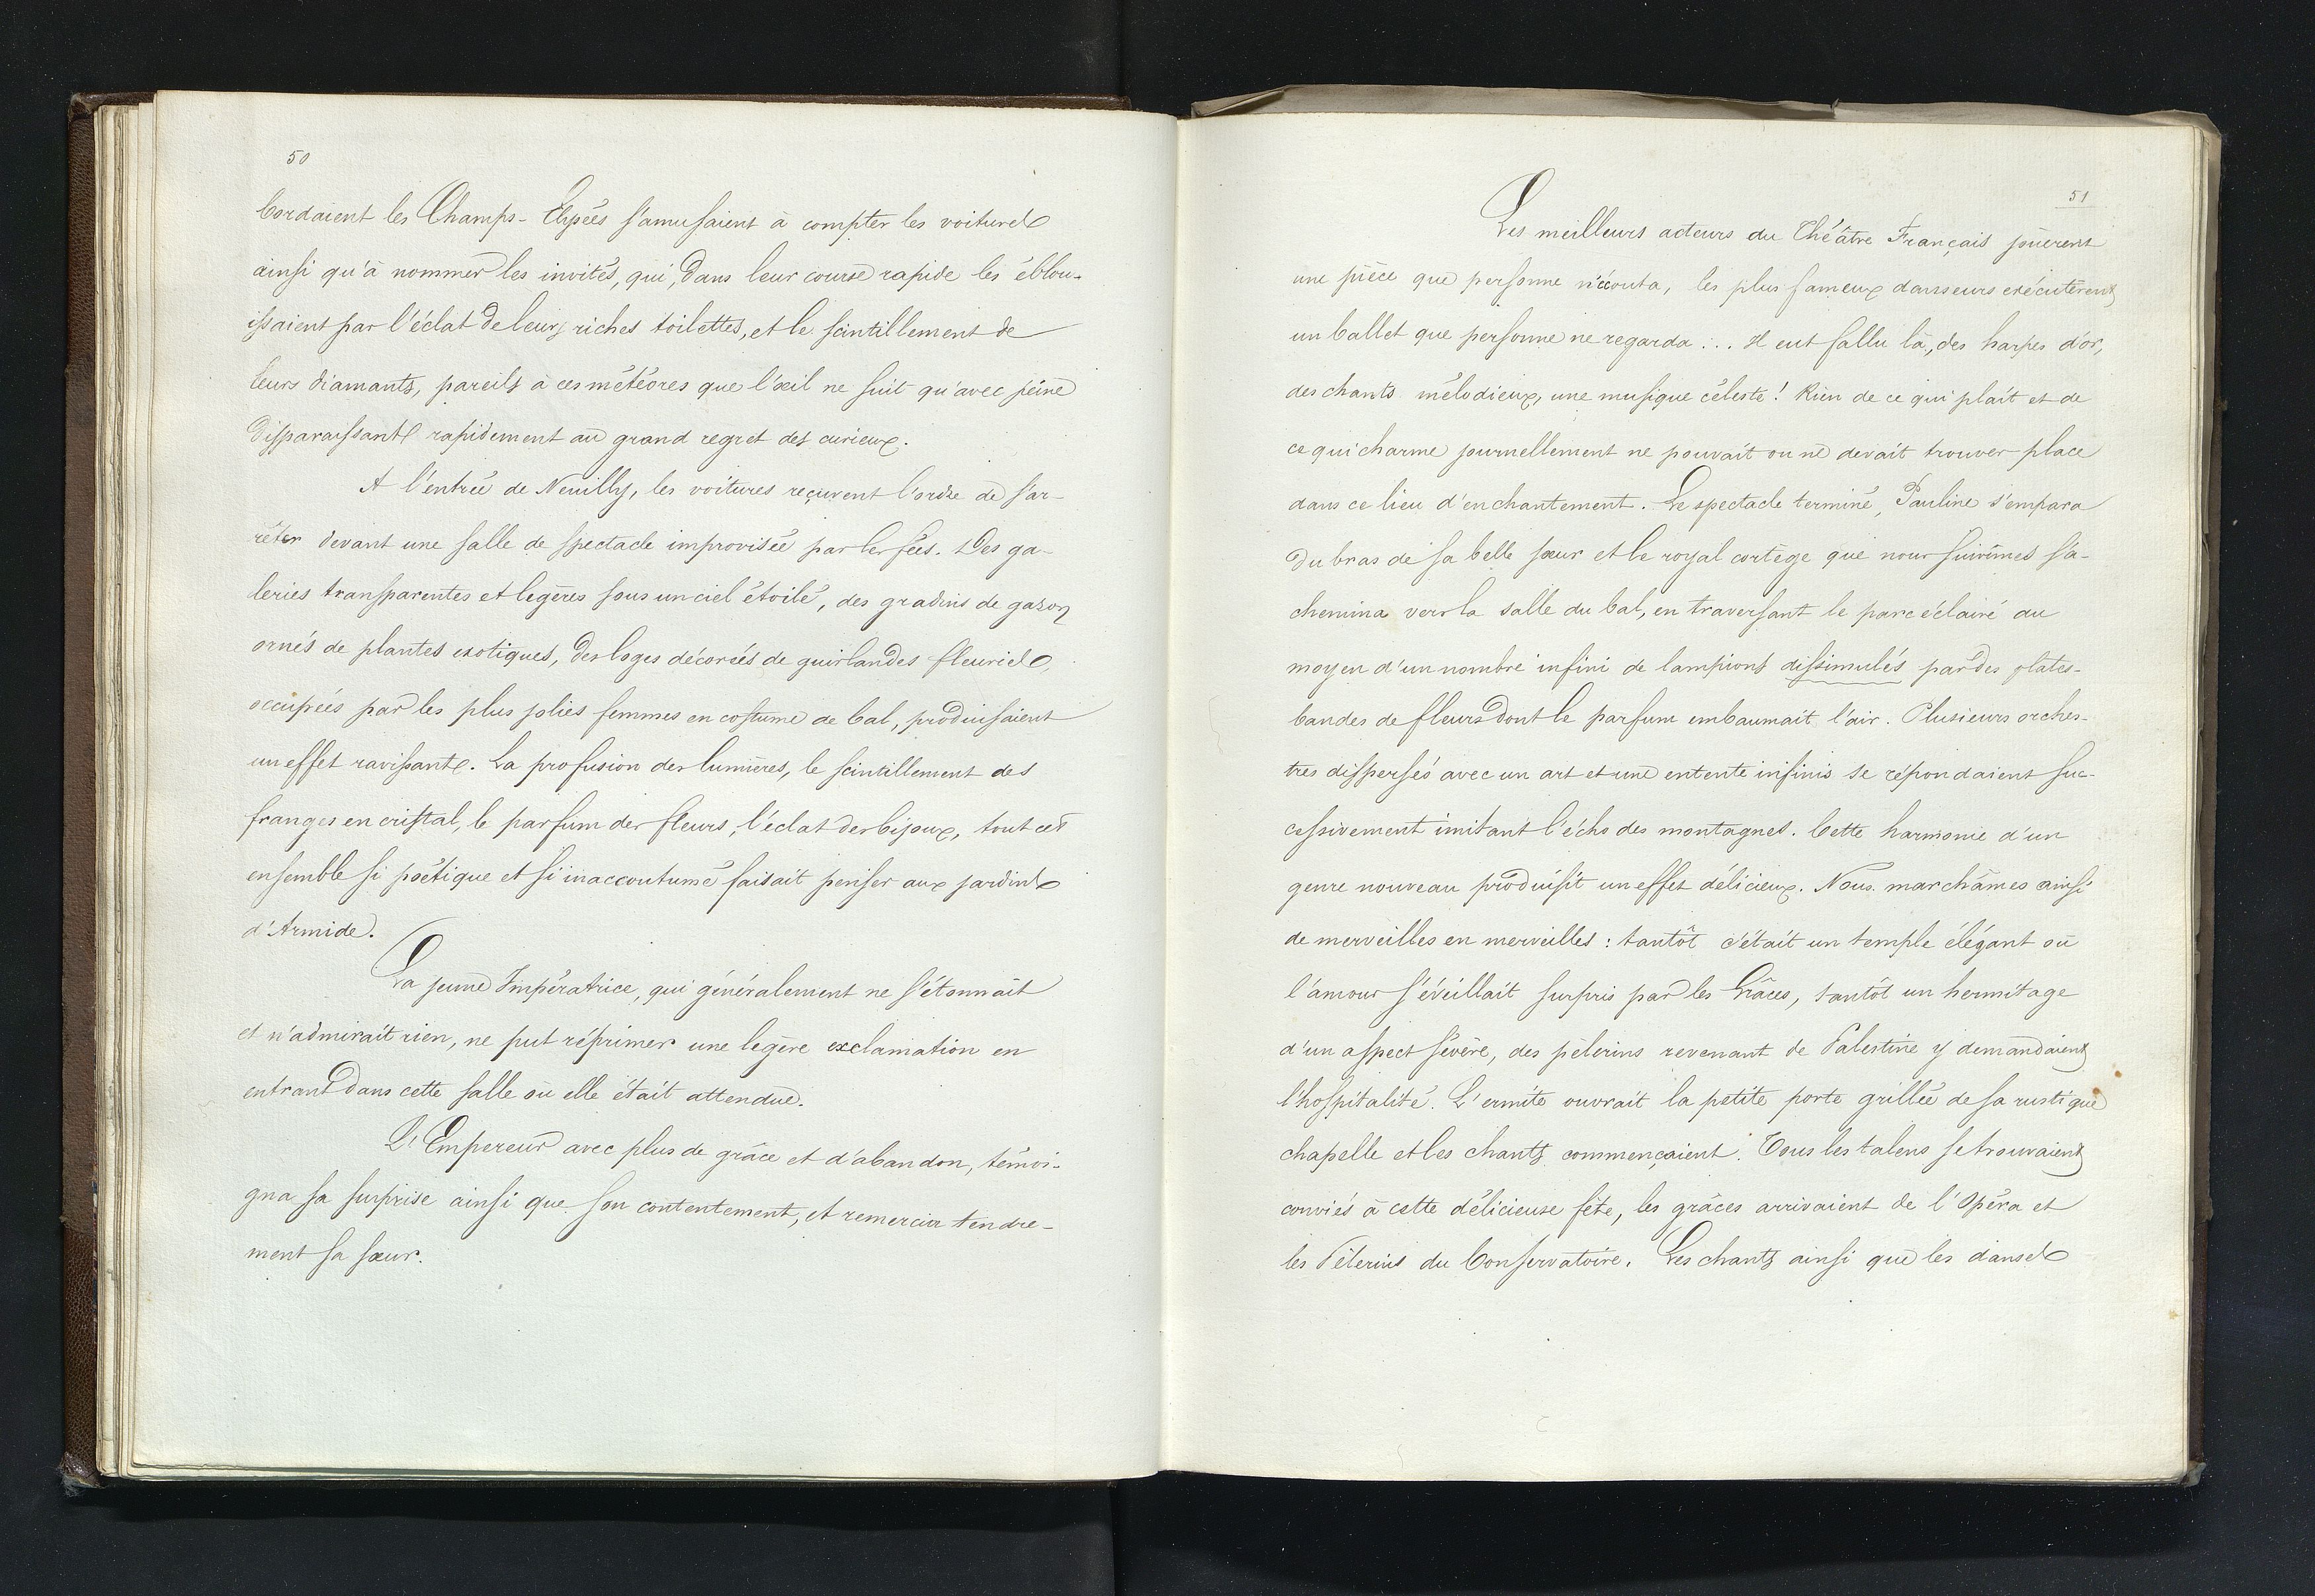 50
bordaient les Champs-Elysées s'amusaient à compter les voitures
ainsi qu'à nommer les invités, qui, dans leur course rapide les éblou-
issaient par l'éclat de leurs riches toilettes, et le scintillement de
leurs diamants, pareils à ces météores que l'œil ne suit qu'avec peine
disparaissant rapidement au grand regret des curieux.
A l'entrée de Neuilly, les voitures reçurent l'ordre de s'ar-
rêter devant une salle de spectacle improvisée par les fées. Des ga-
leries transparentes et legères sous un ciel étoilé, des gradins de gazon
ornés de plantes exotiques, des loges décorées de guirlandes fleuries,
occupées par les plus jolies femmes en costume de bal, produisaient
un effet ravissant. La profusion des lumières, le scintillement des
franges en cristal, le parfum des fleurs, l'éclat des bijoux, tout cet
ensemble si poétique et si inaccoutumé faisait penser aux jardins
d'Armide.
La jeune Impératrice, qui généralement ne s'étonnait
et n'admirait rien, ne put réprimer une legère exclamation en
entrant dans cette salle où elle était attendue.
L'Empereur avec plus de grâce et d'abandon, témoi-
gna sa surprise ainsi que son contentement, et remercia tendre-
ment sa sœur.
51
Les meilleurs acteurs du Théâtre Français jouèrent
une pièce que personne n'écouta, les plus fameux danseurs exécutèrent
un ballet que personne ne regarda... Il eut fallu là, des harpes d'or,
des chants mélodieux, une musique céleste! Rien de ce qui plaît et de
ce qui charme journellement ne pouvait ou ne devait trouver place
dans ce lieu d'enchantement. Le spectacle terminé, Pauline s'empara
du bras de sa belle sœur et le royal cortège que nous suivîmes s'a-
chemina vers la salle du bal, en traversant le parc éclairé au
moyen d'un nombre infini de lampions dissimulés par des plates-
bandes de fleurs dont le parfum embaumait l'air. Plusieurs orches-
tres dispersés avec un art et une entente infinis se répondaient suc-
cessivement imitant l'écho des montagnes. Cette harmonie d'un
genre nouveau produisit un effet délicieux. Nous marchâmes ainsi
de merveilles en merveilles : tantôt c'était un temple élégant où
l'amour s'éveillait surpris par les Grâces, tantôt un hermitage
d'un aspect sévère, des pélerins revenant de Palestine y demandaient
l'hospitalité. L'ermite ouvrait la petite porte grillée de sa rustique
chapelle et les chants commençaient. Tous les talens se trouvaient
conviés à cette délicieuse fête, les grâces arrivaient de l'Opéra et
les Pélerins du Conservatoire. Les chants ainsi que les danses